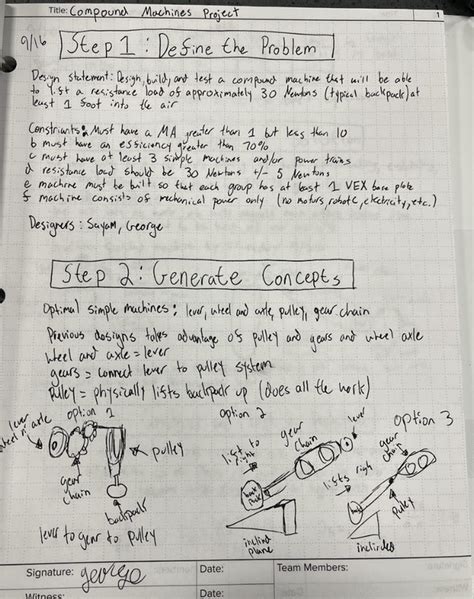 Title: Compound Machines Project
1
9/16
Step 1: Define the Problem
Design statement: Design, build, and test a compound machine that will be able
to lift a resistance load of approximately 30 Newtons (typical backpack) at
least 1 foot into the air
Constraints: Must have a MA greater than 1 but less than 10
b must have an efficiency greater than 70%
c must have at least 3 simple machines and/or power trains
d resistance load should be 30 Newtons +/- 5 Newtons
e machine must be built so that each group has at least 1 VEX base plate
f machine consists of mechanical power only (no motors, robotc, electricity, etc.)
Designers: Sayam, George
Step 2: Generate Concepts
Optimal simple machines: lever, wheel and axle, pulley, gear chain
Previous designs takes advantage of pulley and gears and wheel axle
Wheel and axle = lever
gears = connect lever to pulley system
Pulley = physically lifts backpack up (does all the work)
option 1
option 2
option 3
lever
wheel n' axle
gear
chain
pulley
backpack
lever to gear to pulley
lifts to
right
gear
chain
lever
back
pack
inclind
plane
lifts right
gear
chain
pulley
inclined
Signature: george
Date:
Team Members:
Witness:
Date: